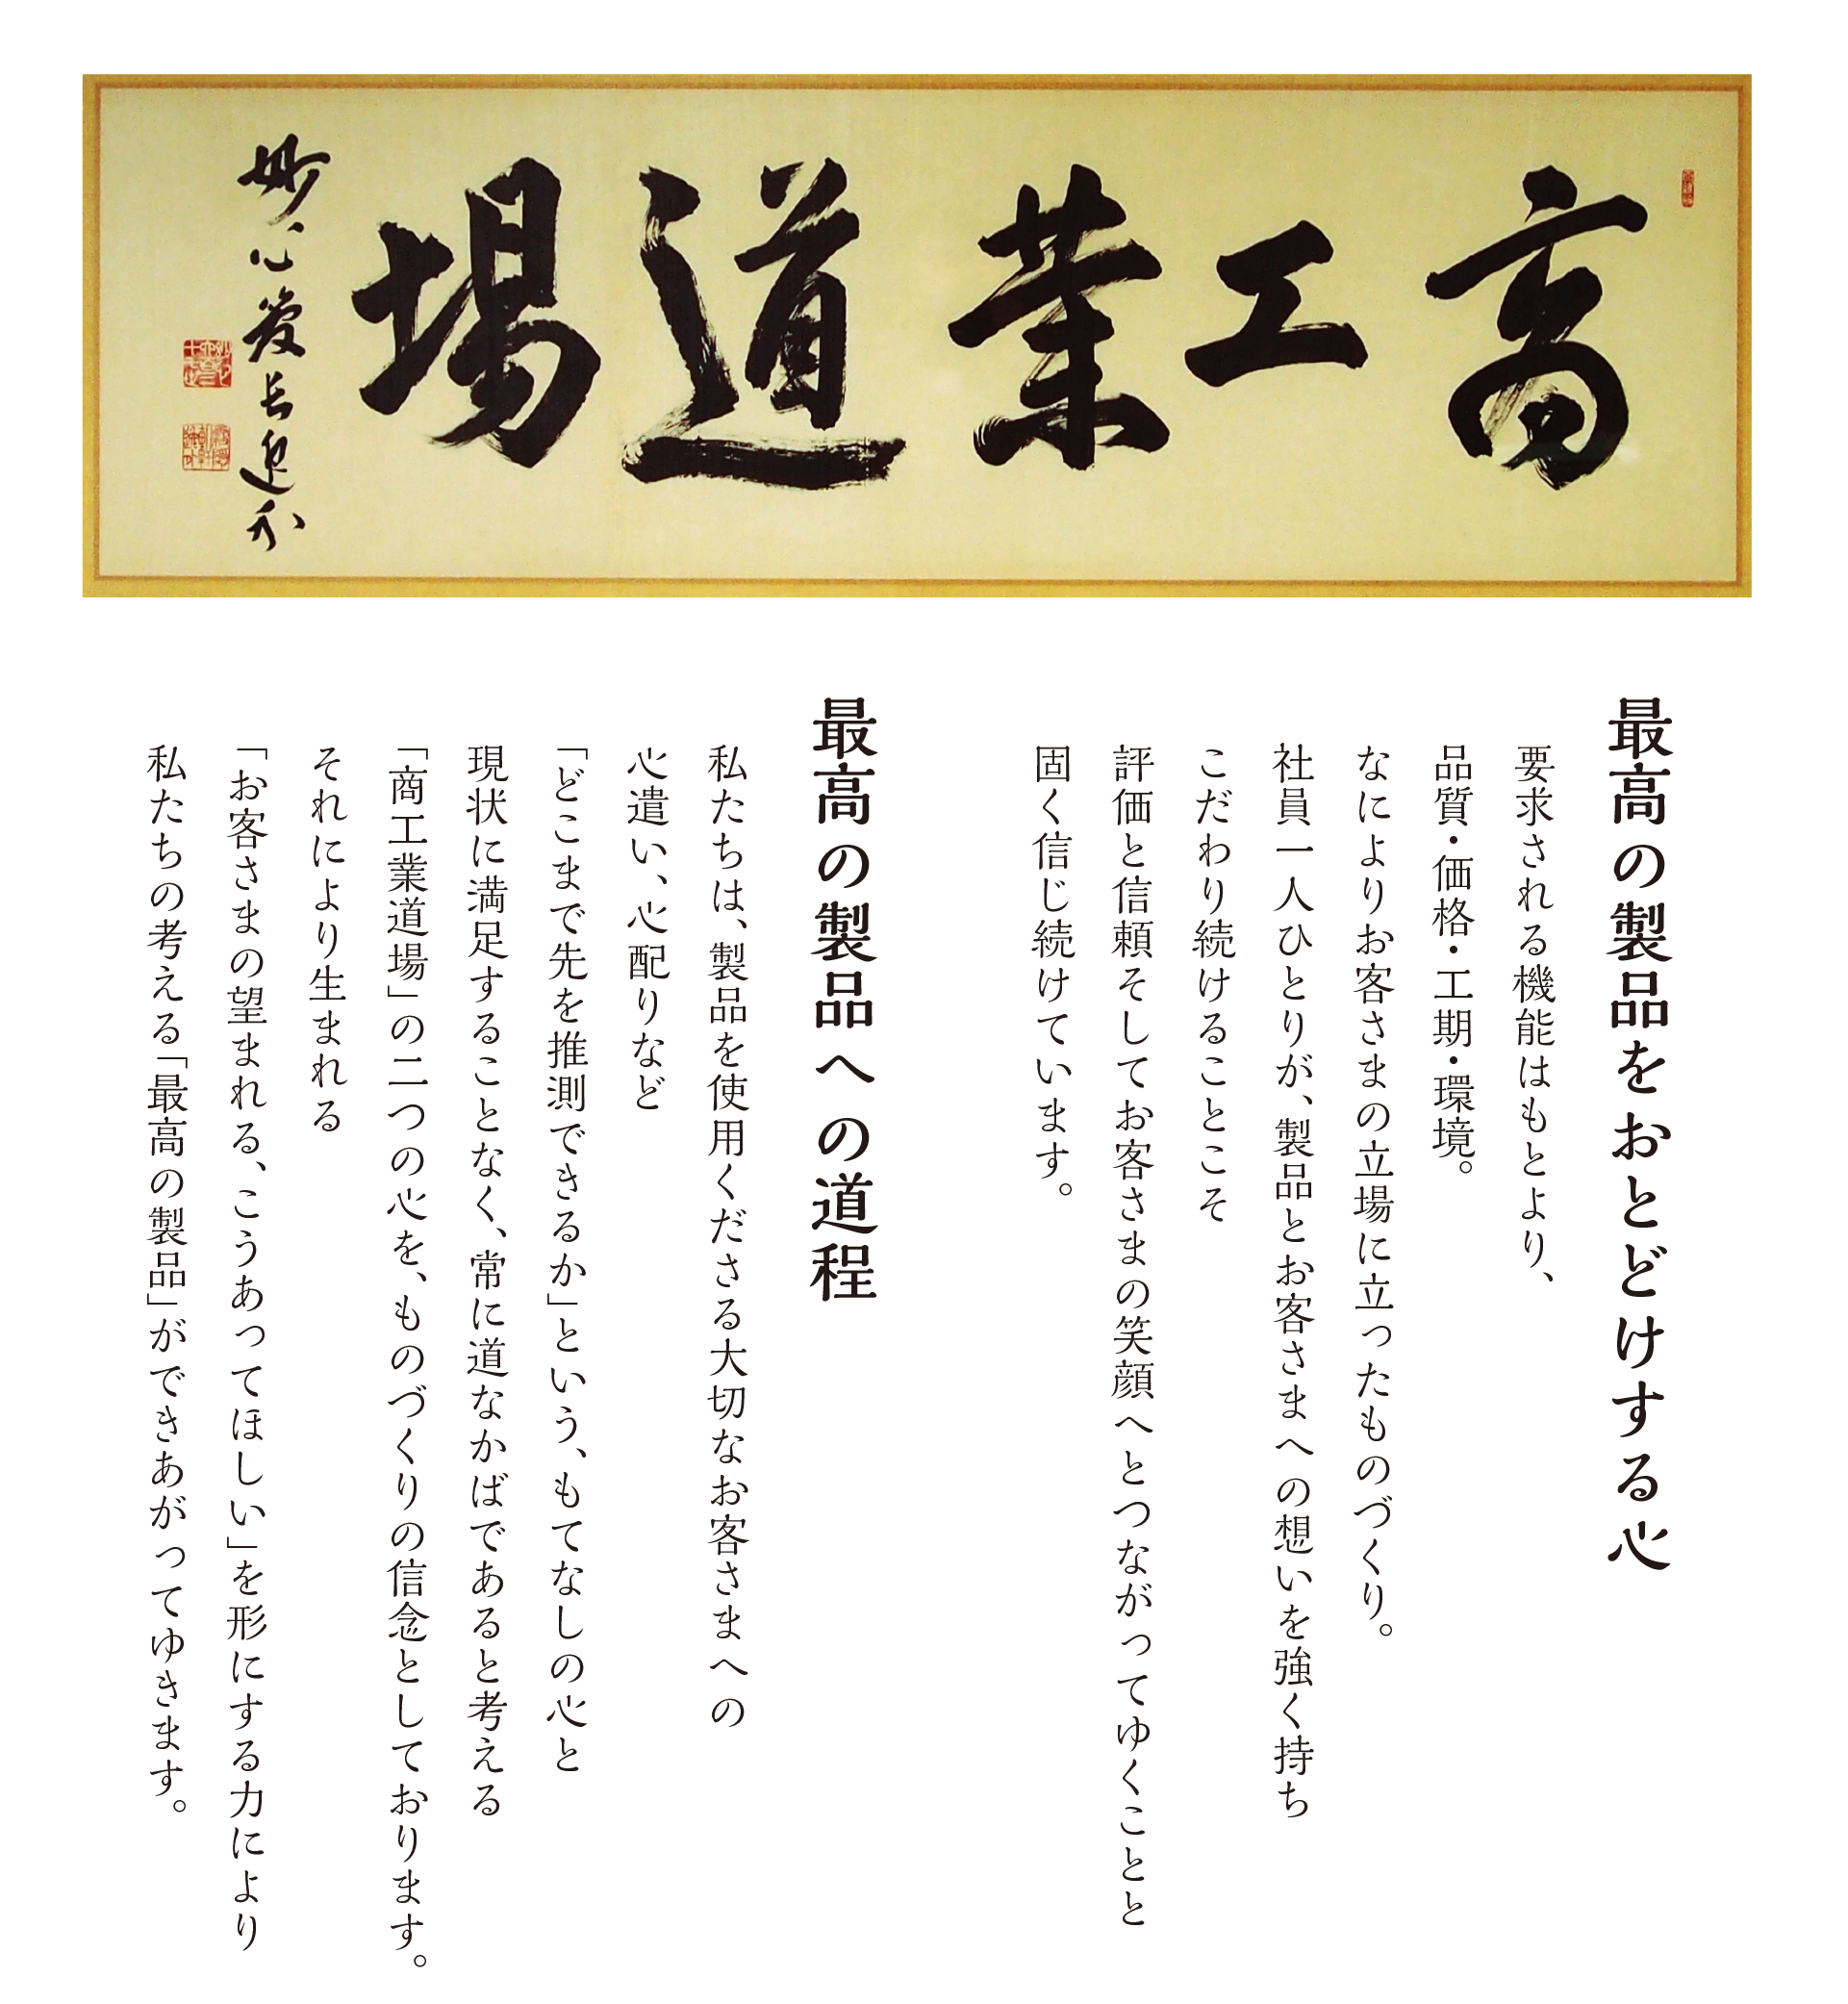 商工業道場
妙心
最高の製品をおとどけする心
要求される機能はもとより、
品質・価格・工期・環境。
なによりお客さまの立場に立ったものづくり。
社員一人ひとりが、製品とお客さまへの想いを強く持ち
こだわり続けることこそ
評価と信頼そしてお客さまの笑顔へとつながってゆくことと
固く信じ続けています。
最高の製品への道程
私たちは、製品を使用くださる大切なお客さまへの
心遣い、心配りなど
「どこまで先を推測できるか」という、もてなしの心と
現状に満足することなく、常に道なかばであると考える
「商工業道場」の二つの心を、ものづくりの信念としております。
それにより生まれる
「お客さまの望まれる、こうあってほしい」を形にする力により
私たちの考える「最高の製品」ができあがってゆきます。